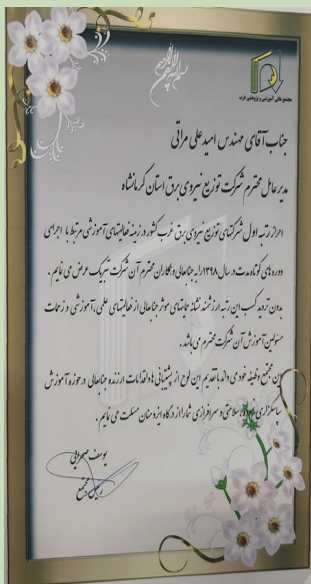 بسم الله الرحمن الرحیم
مجتمع عالی آموزشی و پژوهشی غرب
جناب آقای مهندس امید علی مراتی
مدیر عامل محترم شرکت توزیع نیروی برق استان کرمانشاه
احراز رتبه اول شرکتهای توزیع نیروی برق غرب کشور در زمینه فعالیتهای آموزشی مرتبط با اجرای
دوره های کوتاه مدت در سال ۱۳۹۸ را به جنابعالی و همکاران محترم آن شرکت تبریک عرض می نمایم .
بدون تردید کسب این رتبه ارزشمند نشانه حمایتهای موثر جنابعالی از فعالیتهای علمی، آموزشی و زحمات
مسئولین آموزش آن شرکت محترم می باشد .
این مجتمع وظیفه خود می داند با تقدیم این لوح از پشتیبانی ها و اقدامات ارزنده جنابعالی در حوزه آموزش
سپاسگزاری نموده، سلامتی و سرافرازی شما را از درگاه ایزد منان مسئلت می نمایم .
یوسف صحرایی
رئیس مجتمع